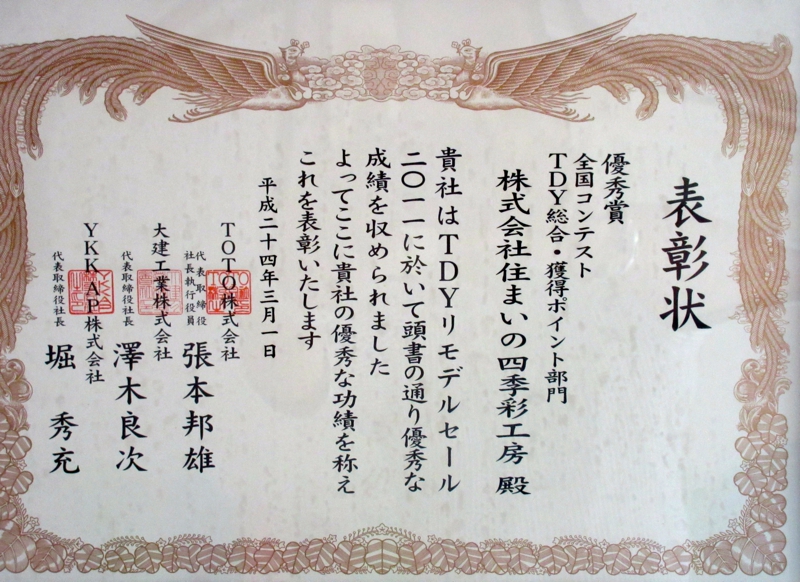 表彰状
優秀賞
全国コンテスト
TDY総合・獲得ポイント部門
株式会社住まいの四季彩工房 殿
貴社はTDYリモデルセール
二〇一一に於いて頭書の通り優秀な
成績を収められました
よってここに貴社の優秀な功績を称え
これを表彰いたします
平成二十四年三月一日
TOTO株式会社
代表取締役
社長執行役員
張本邦雄
大建工業株式会社
代表取締役社長
澤木良次
YKKAP株式会社
代表取締役社長
堀 秀充